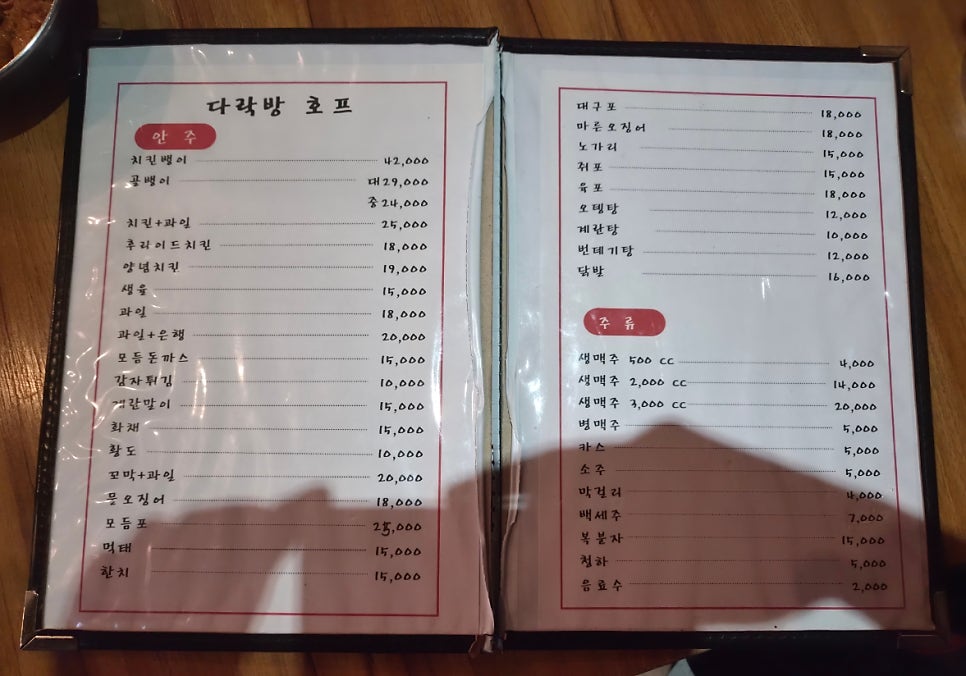 다락방 호프
안 주
치킨뱅이 42,000
골뱅이 대29,000
중24,000
치킨+과일 25,000
후라이드치킨 18,000
양념치킨 19,000
생율 15,000
과일 18,000
과일+은행 20,000
모듬돈까스 15,000
감자튀김 10,000
계란말이 15,000
화채 15,000
황도 10,000
꼬막+과일 20,000
물오징어 18,000
모듬포 25,000
먹태 15,000
한치 15,000
대구포 18,000
마른오징어 18,000
노가리 15,000
쥐포 15,000
육포 18,000
오뎅탕 12,000
계란탕 10,000
번데기탕 12,000
닭발 16,000
주 류
생맥주 500 cc 4,000
생맥주 2,000 cc 14,000
생맥주 3,000 cc 20,000
병맥주 5,000
카스 5,000
소주 5,000
막걸리 4,000
백세주 7,000
복분자 15,000
청하 5,000
음료수 2,000